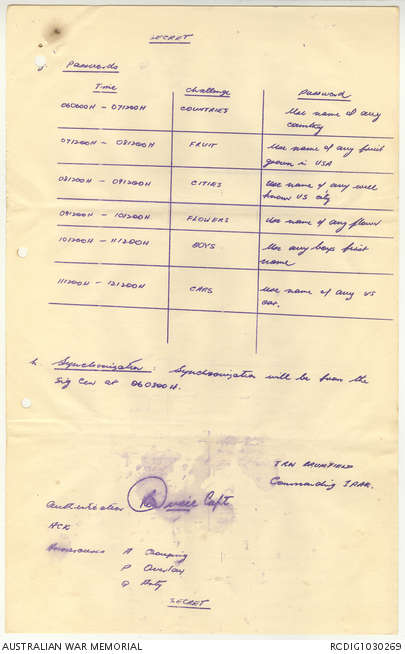 SECRET
Passwords
Time Challenge Password
060600H - 071200H COUNTRIES Use name of any
country
071200H - 081200H FRUIT Use name of any fruit
grown in USA
081200H - 091200H CITIES Use name of any well
known US city
091200H - 101200H FLOWERS Use name of any flower
101200H - 111200H BOYS Use any boys first
name
111200H - 121200H CARS Use name of any US
car.
h. Synchronization: Synchronization will be from the
Sig Cen at 060300H.
JRN BRUMFIELD
Commanding 1RAR.
Authentication Capt
ACK
Annexures A Grouping
P Overlay
Q Arty
SECRET
AUSTRALIAN WAR MEMORIAL RCDIG1030269